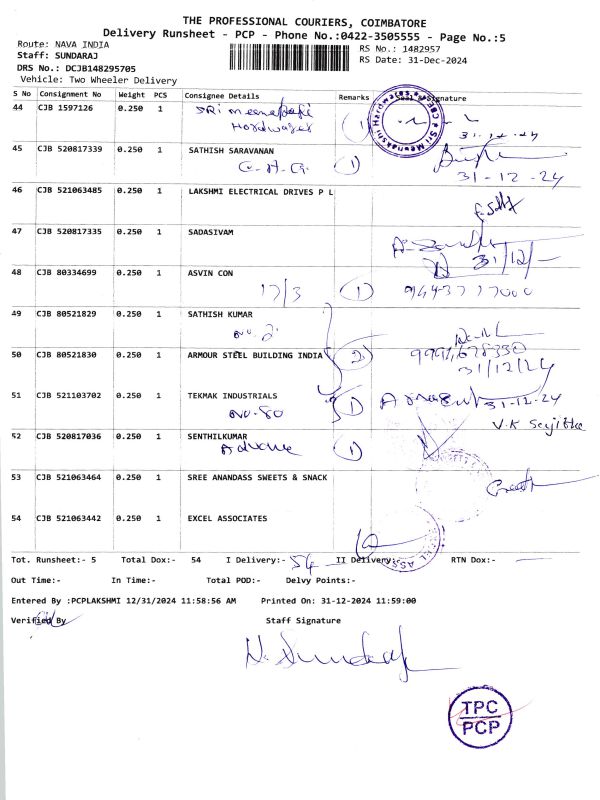 THE PROFESSIONAL COURIERS, COIMBATORE
Delivery Runsheet - PCP - Phone No.:0422-3505555 - Page No.:5
Route: NAVA INDIA
RS No.: 1482957
Staff: SUNDARAJ
RS Date: 31-Dec-2024
DRS No.: DCJB148295705
Vehicle: Two Wheeler Delivery
S No Consignment No Weight PCS Consignee Details Remarks Seal & Signature
44 CJB 1597126 0.250 1 SRi meenakshi
Hardwares 1
31-12-24
Sri Meenakshi Hardwares * CBE
45 CJB 520817339 0.250 1 SATHISH SARAVANAN
1
31-12-24
46 CJB 521063485 0.250 1 LAKSHMI ELECTRICAL DRIVES P L
47 CJB 520817335 0.250 1 SADASIVAM
31/12/-
48 CJB 80334699 0.250 1 ASVIN CON
17/3 1 9443717000
49 CJB 80521829 0.250 1 SATHISH KUMAR
No. 2
50 CJB 80521830 0.250 1 ARMOUR STEEL BUILDING INDIA 2
31/12/24
51 CJB 521103702 0.250 1 TEKMAK INDUSTRIALS
No.80 1 31-12-24
V.K
52 CJB 520817036 0.250 1 SENTHILKUMAR
Advance 1
53 CJB 521063464 0.250 1 SREE ANANDASS SWEETS & SNACK
54 CJB 521063442 0.250 1 EXCEL ASSOCIATES
Tot. Runsheet:- 5 Total Dox:- 54 I Delivery:- 54 II Delivery:- RTN Dox:-
Out Time:- In Time:- Total POD:- Delvy Points:-
Entered By :PCPLAKSHMI 12/31/2024 11:58:56 AM Printed On: 31-12-2024 11:59:00
Verified By Staff Signature
TPC
PCP